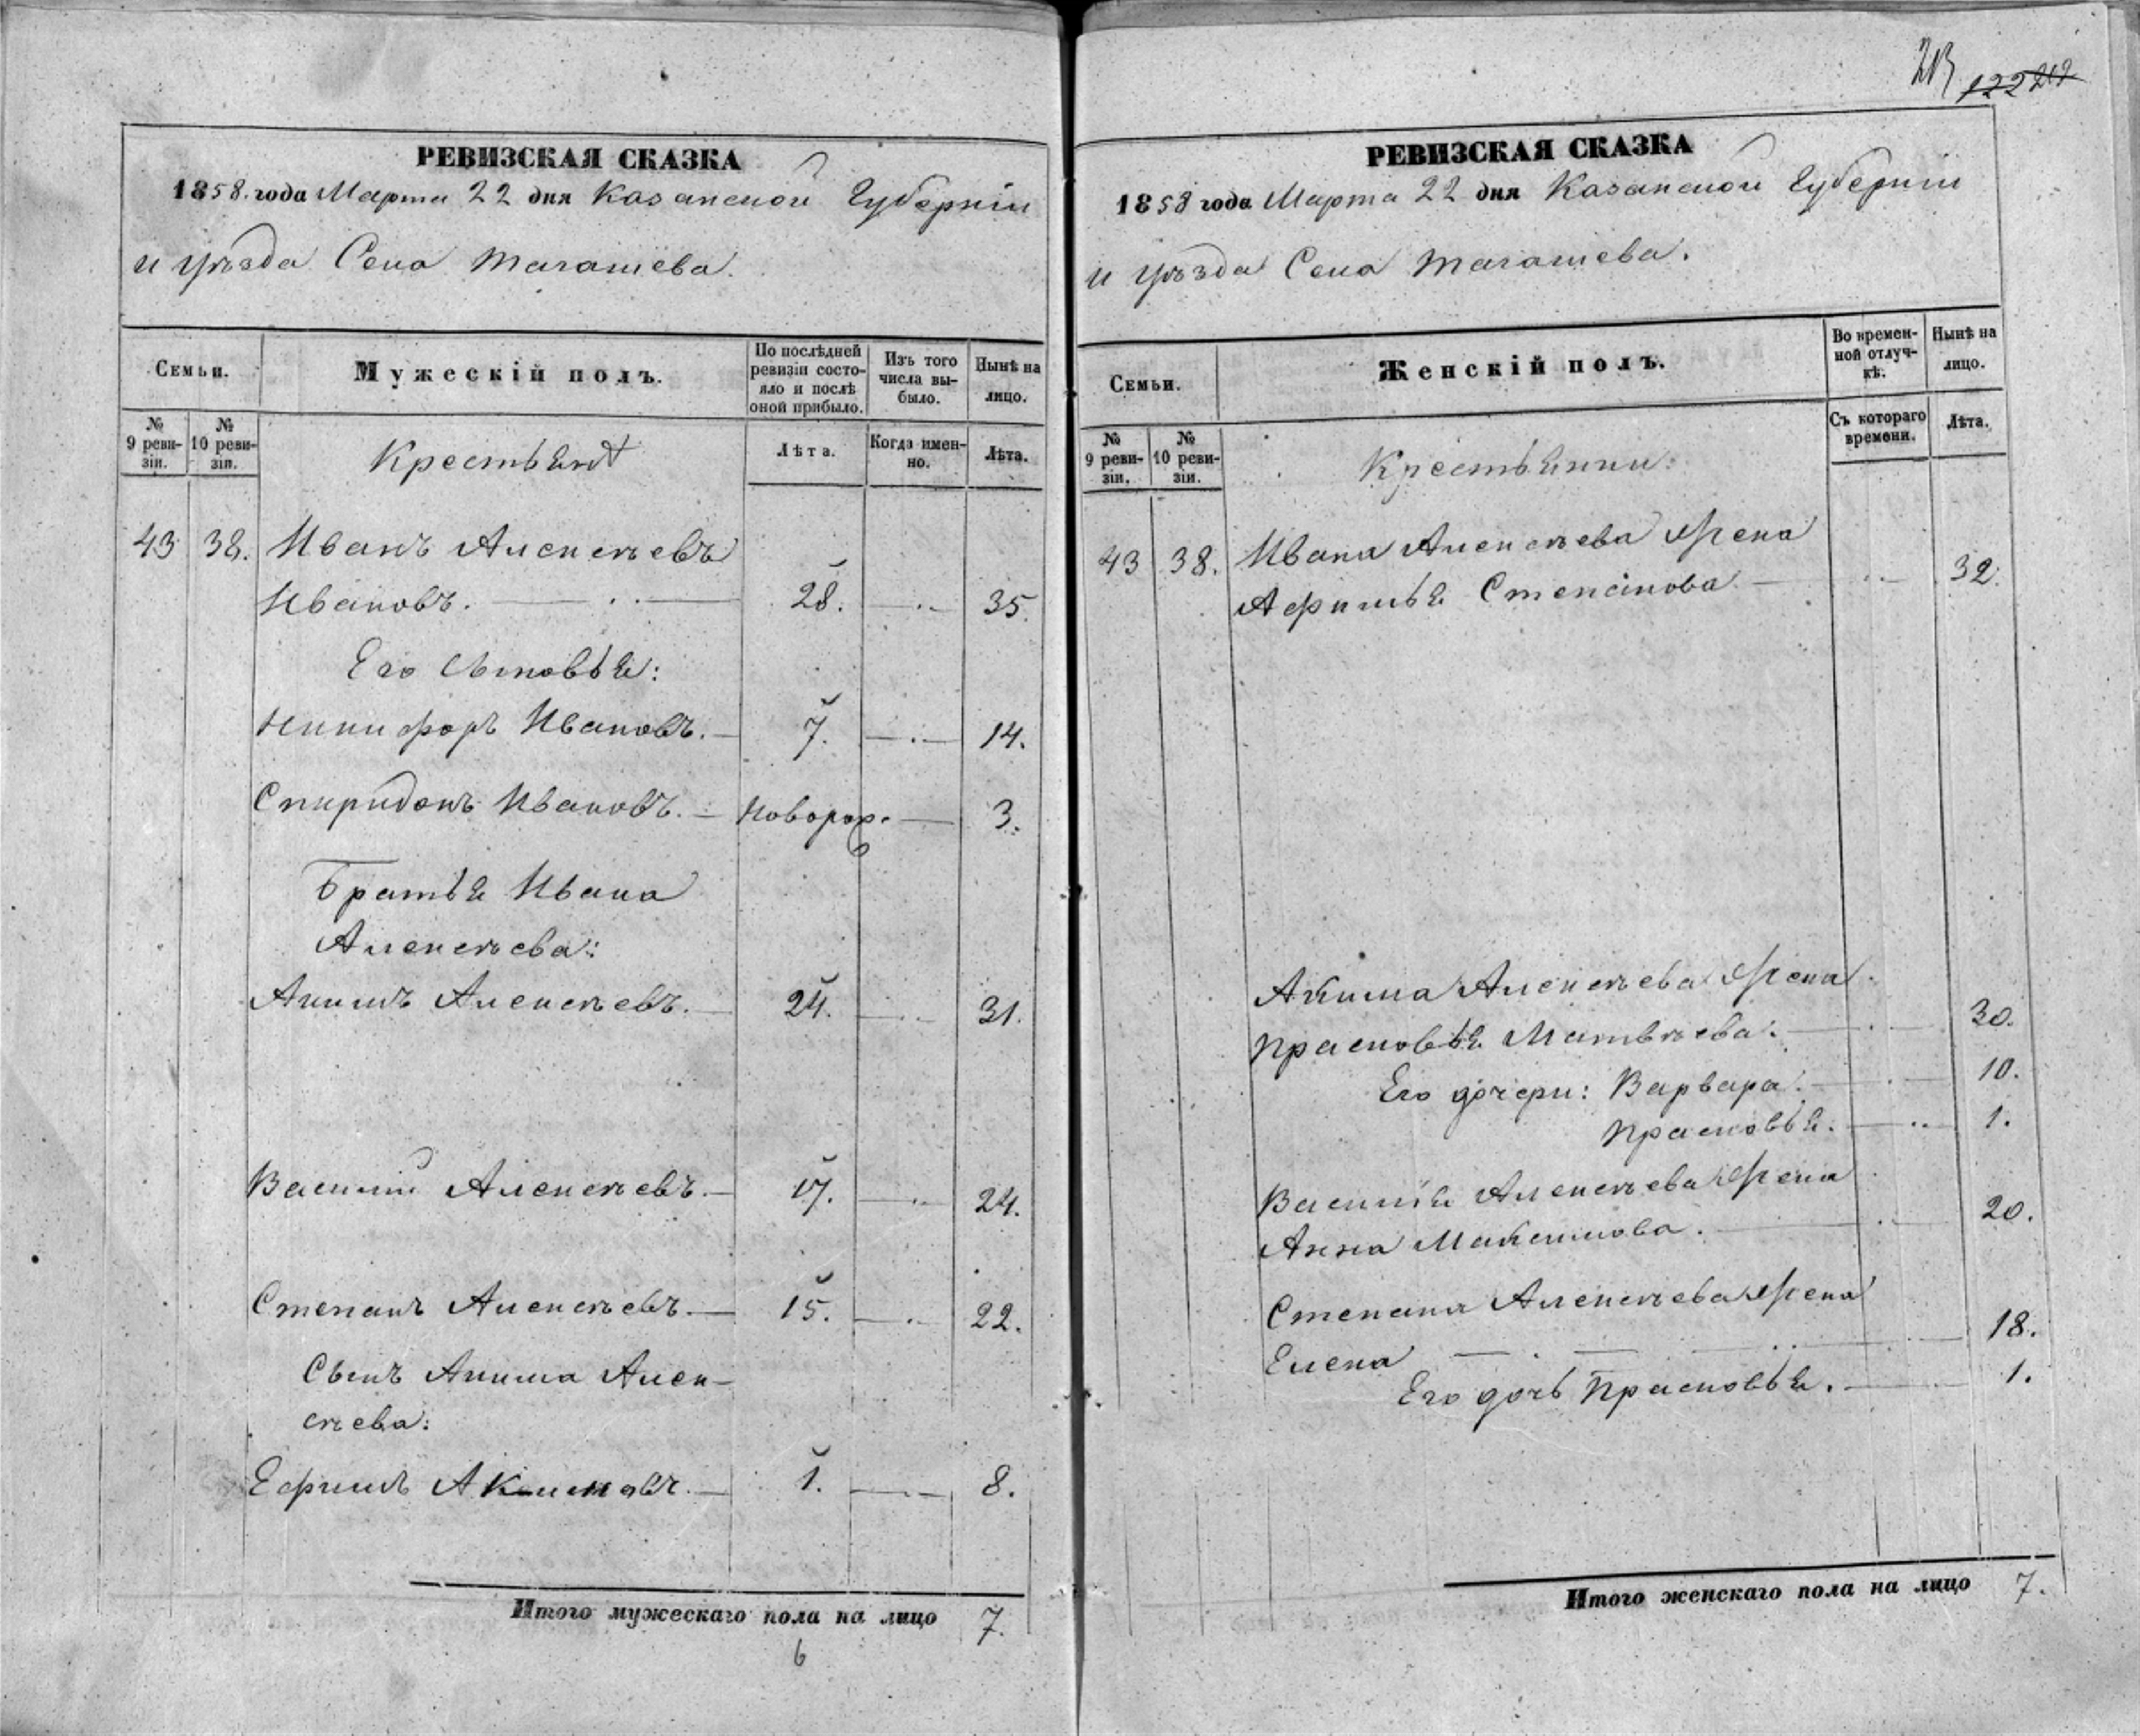 РЕВИЗСКАЯ СКАЗКА
1858. года Марта 22 дня Казанской Губерніи
и уѣзда Села Тагашева.
Семьи.
Мужескій полъ.
По послѣдней ревизіи состояло и послѣ оной прибыло.
Изъ того числа выбыло.
Нынѣ на лицо.
№ 9 ревизіи.
№ 10 ревизіи.
Крестьянъ
Лѣта.
Когда именно.
Лѣта.
43 38. Иванъ Алексѣевъ
Ивановъ. 28. 35.
Его Сыновья:
Никифоръ Ивановъ. 7. 14.
Спиридонъ Ивановъ. Новорож. 3.
Братья Ивана
Алексѣева:
Акимъ Алексѣевъ. 24. 31.
Василій Алексѣевъ. 17. 24.
Степанъ Алексѣевъ. 15. 22.
Сынъ Акима Алек-
сѣева:
Ефимъ Акимовъ. 1. 8.
Итого мужескаго пола на лицо 7.
6
213 122 212
РЕВИЗСКАЯ СКАЗКА
1858 года Марта 22 дня Казанской Губерніи
и уѣзда Села Тагашева.
Семьи.
Женскій полъ.
Во временной отлучкѣ.
Нынѣ на лицо.
№ 9 ревизіи.
№ 10 ревизіи.
Крестьянки:
Съ котораго времени.
Лѣта.
43 38. Ивана Алексѣева жена
Афимья Степанова 32.
Акима Алексѣева жена
Прасковья Матвѣева. 30.
Его дочери: Варвара. 10.
Прасковья. 1.
Василья Алексѣева жена
Анна Максимова. 20.
Степана Алексѣева жена
Елена 18.
Его дочь Прасковья. 1.
Итого женскаго пола на лицо 7.